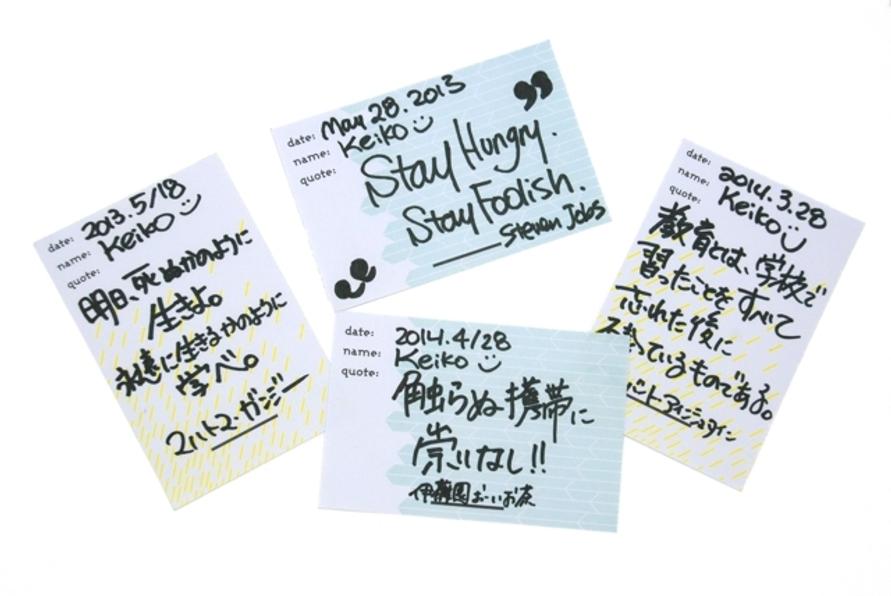 date: 2013.5/18
name: Keiko
quote:
明日、死ぬかのように
生きよ。
永遠に生きるかのように
学べ。
マハトマ・ガンジー
date: May 28.2013
name: Keiko
quote:
Stay Hungry.
Stay Foolish.
Steven Jobs
date: 2014.4/28
name: Keiko
quote:
触らぬ携帯に
祟りなし!!
伊藤園おーいお茶
date: 2014.3.28
name: Keiko
quote:
教育とは、学校で
習ったことをすべて
忘れた後に
っているものである。
アインシュタイン